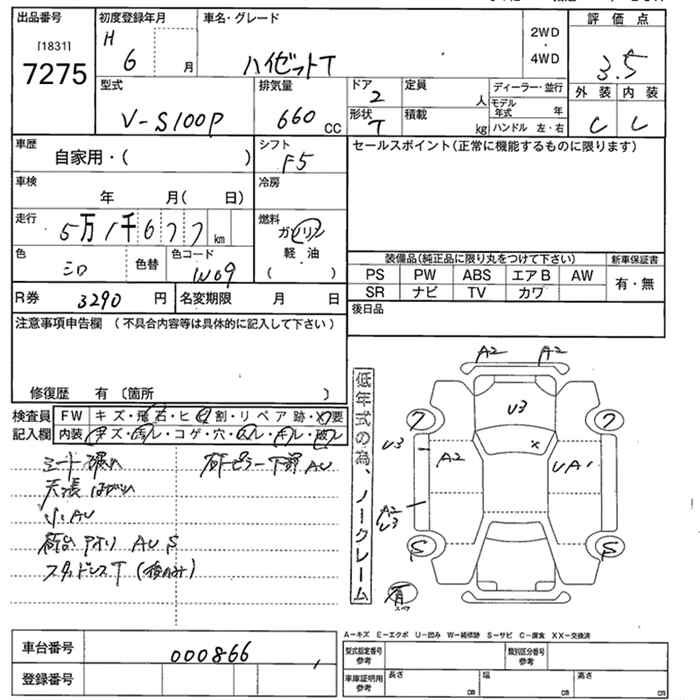 出品番号 初度登録年月 車名・グレード 2WD・4WD 評価点
[1831]
7275 H 6 月 ハイゼットT 3.5
外装 内装
C C
型式 排気量 ドア 定員 人 ディーラー・並行
V-S100P 660 CC 2 モデル年式 年
形状 T 積載 kg ハンドル 左・右
車歴 シフト セールスポイント(正常に機能するものに限ります)
自家用・( ) F5
車検 冷房
年 月( 日)
走行 燃料
5万1千677 km ガソリン
色 色替 色コード 軽油
シロ W09 ( )
装備品(純正品に限り丸をつけて下さい) 新車保証書
PS PW ABS エアB AW 有・無
SR ナビ TV カワ
R券 3290 円 名変期限 月 日 後日品
注意事項申告欄(不具合内容等は具体的に記入して下さい)
修復歴 有〔箇所 〕
検査員記入欄 FW キズ・飛石・ヒビ割・リペア跡・X要
内装 キズ・汚レ・コゲ・穴・スレ・キレ・破レ
シート破れ
天張はがれ
小AU
荷台アオリ AU S
スタッドレスT(後のみ)
右ピラー下部 AU
低年式の為、ノークレーム
A2 A2
U3
7 7
U3 A2 X UA1
A2
U3
S S
有 スペア
A-キズ E-エクボ U-凹み W-補修跡 S-サビ C-腐食 XX-交換済
車台番号 000866
登録番号
型式指定番号 参考 類別区分番号 参考
車庫証明用 参考 長さ cm 幅 cm 高さ cm